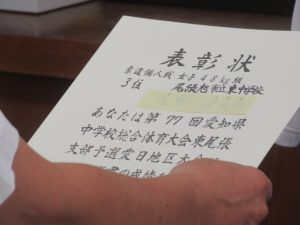 表彰状
柔道個人戦 女子48kg級
3位 尾張旭市立東中学校
あなたは第77回愛知県
中学校総合体育大会東尾張
支部予選愛日地区大会
の成績